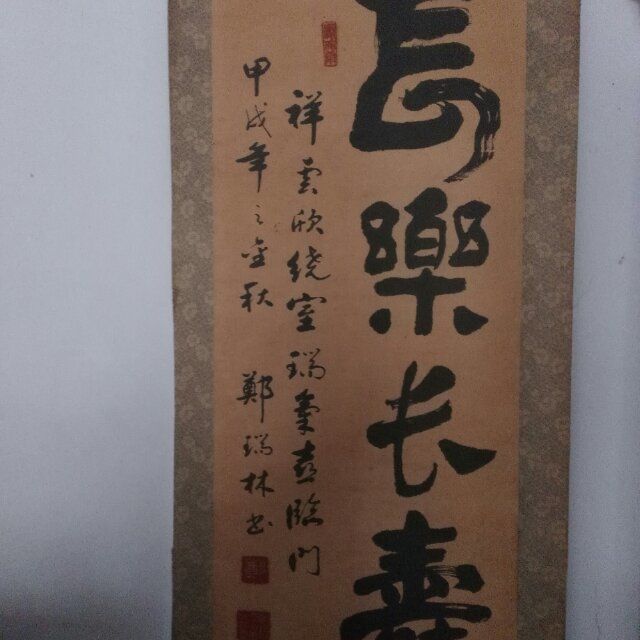 長樂长壽
祥雲欣绕室瑞氣喜臨門
甲戌年之金秋 鄭瑞林书